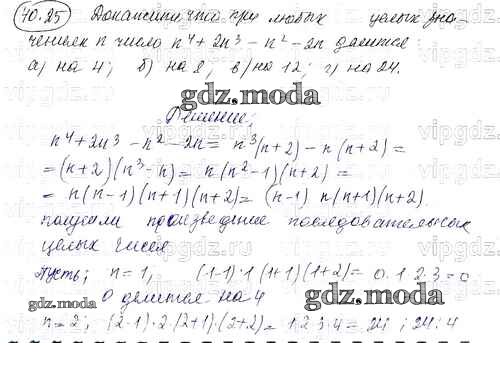 40.25 Докажите что при любых целых зна-
чениях n число n⁴ + 2n³ - n² - 2n делится:
а) на 4; б) на 8; в) на 12; г) на 24.
gdz.moda
Решение;
n⁴ + 2n³ - n² - 2n = n³(n+2) - n(n+2) =
= (n+2)(n³-n) = n(n²-1)(n+2) =
= n(n-1)(n+1)(n+2) = (n-1) n(n+1)(n+2).
получили произведение последовательных
целых чисел
Пусть; n = 1, (1-1)·1(1+1)(1+2) = 0·1·2·3 = 0
0 делится на 4
gdz.moda
gdz.moda
n = 2; (2-1)·2(2+1)·(2+2) = 1·2·3·4 = 24; 24:4
vipgdz.ru